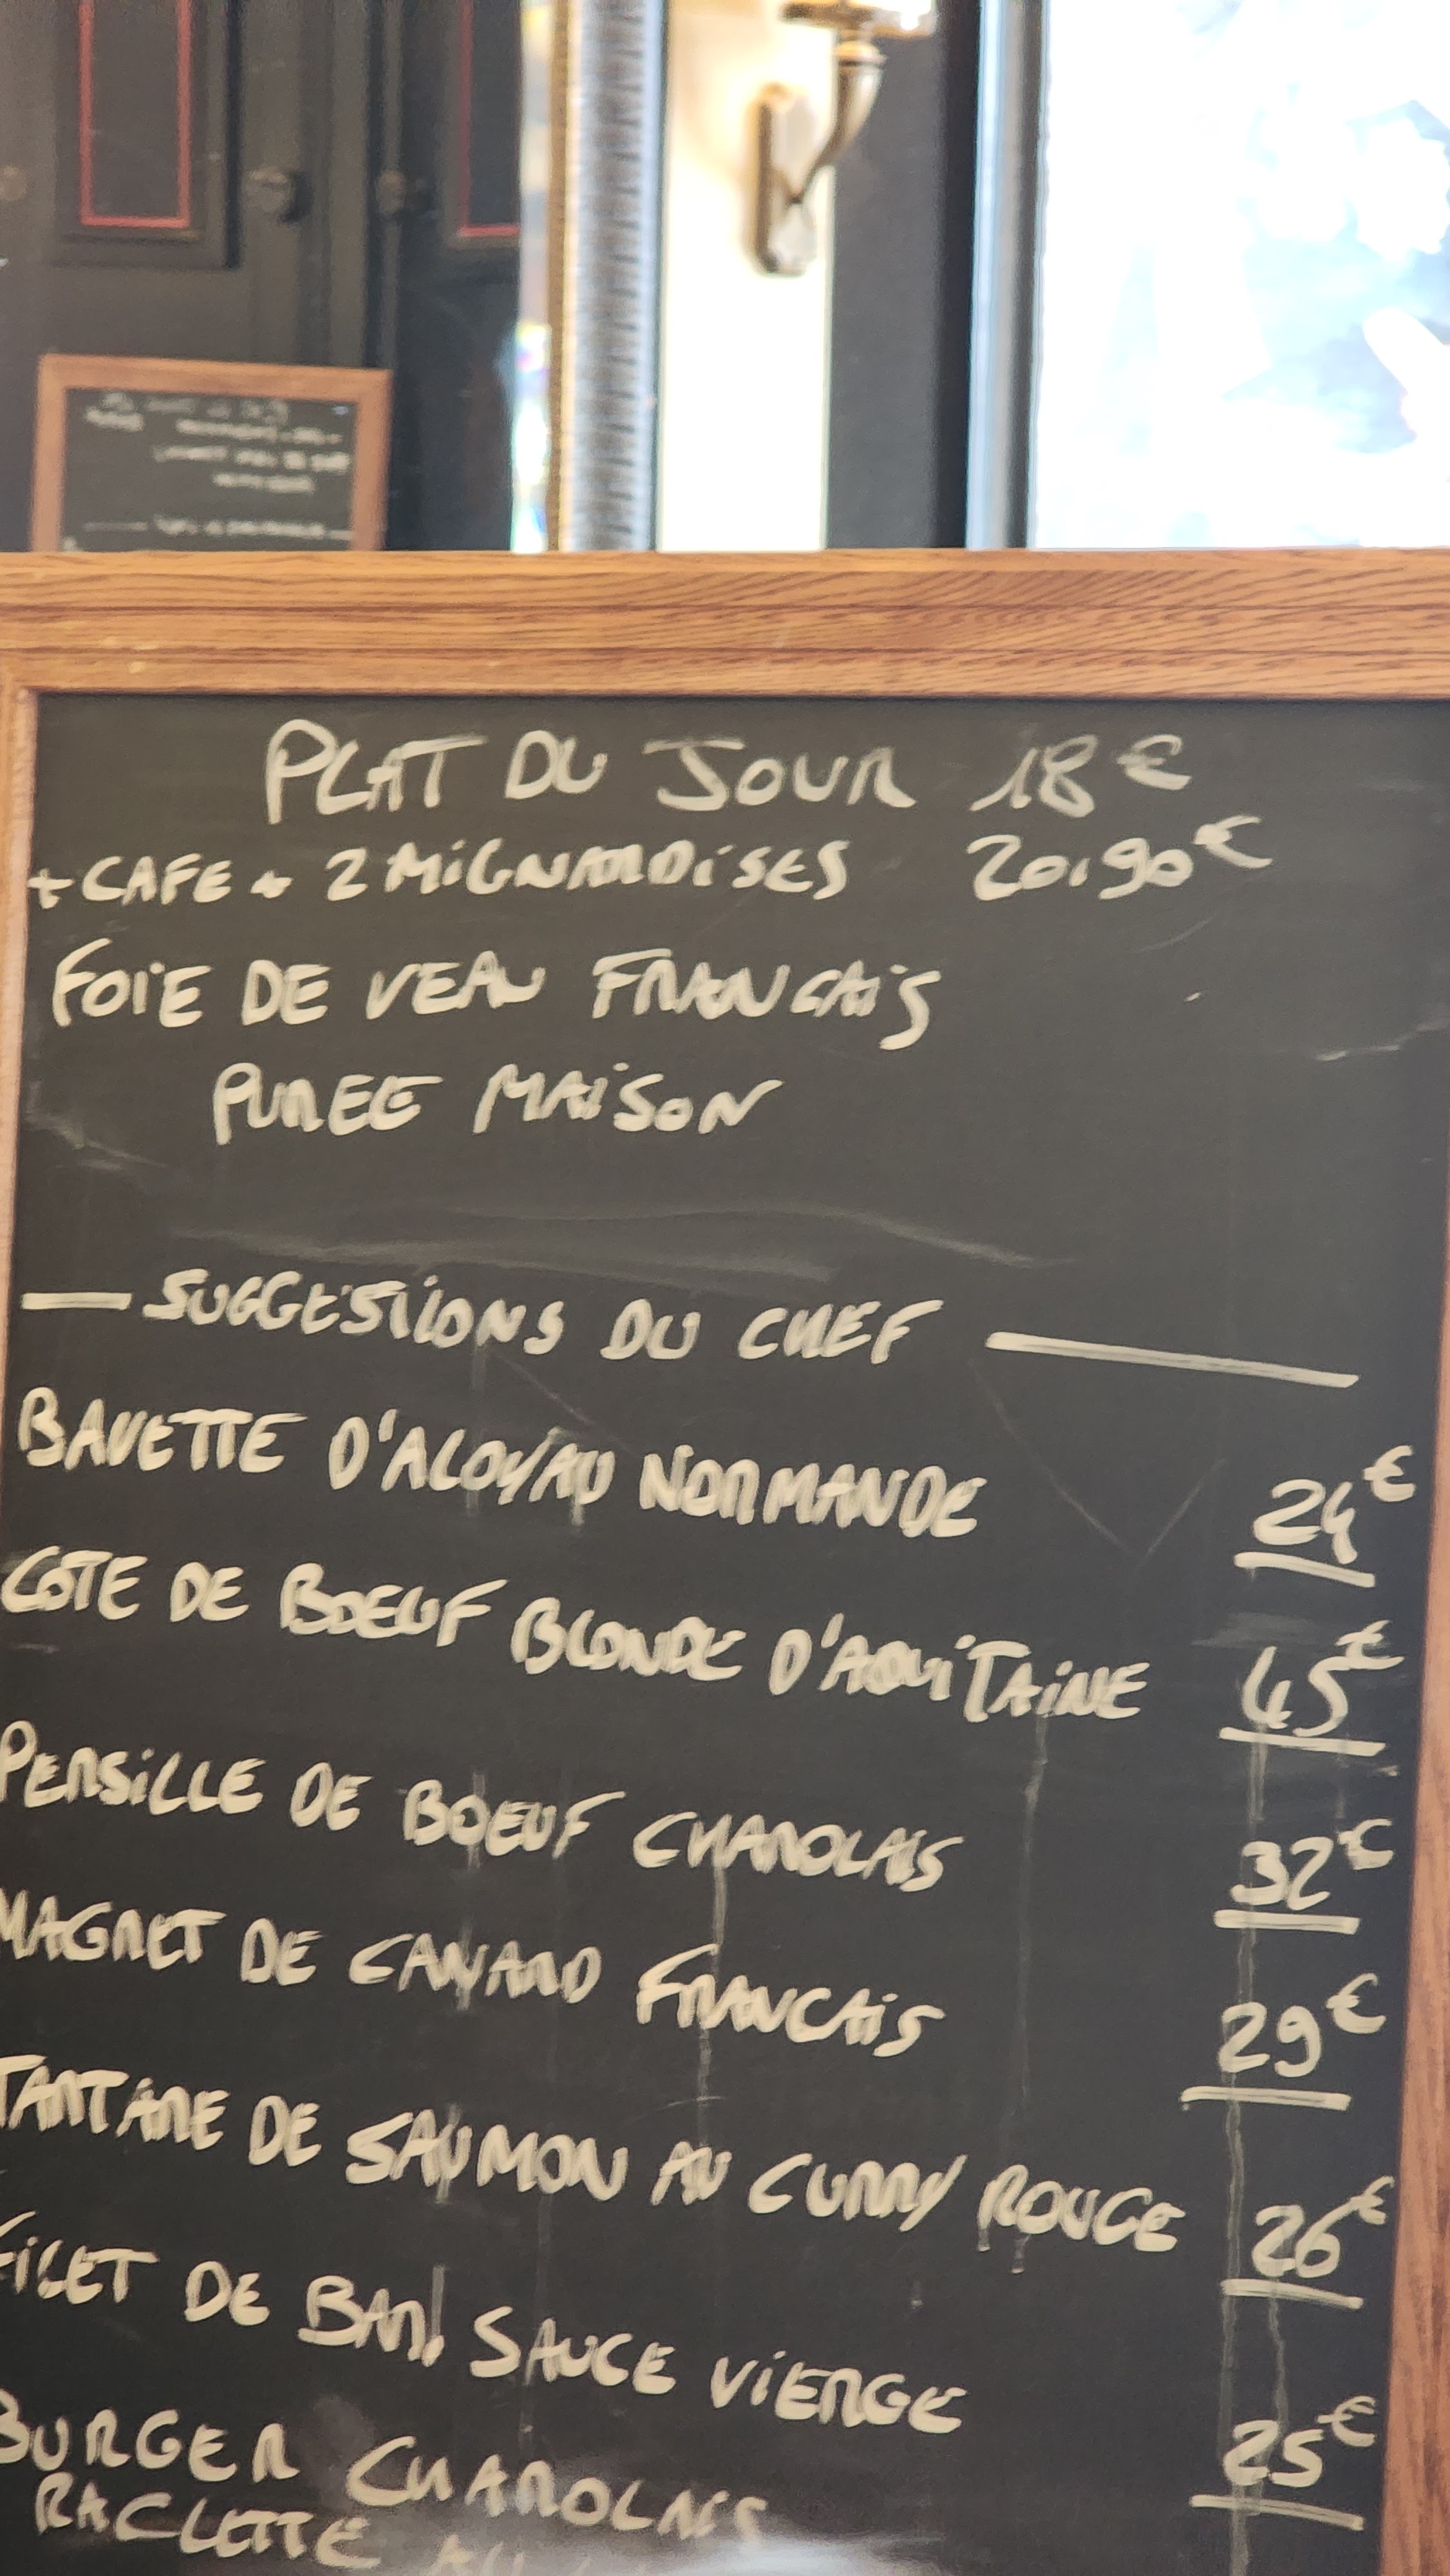 PLAT DU JOUR 18€
+ CAFE + 2 MIGNARDISES 20,90€
FOIE DE VEAU FRANCAIS
PUREE MAISON
— SUGGESTIONS DU CHEF —
BAVETTE D'ALOYAU NORMANDE 24€
COTE DE BOEUF BLONDE D'AQUITAINE 45€
PERSILLE DE BOEUF CHAROLAIS 32€
MAGRET DE CANARD FRANCAIS 29€
TARTARE DE SAUMON AU CURRY ROUGE 26€
FILET DE BAR, SAUCE VIERGE 25€
BURGER CHAROLAIS
RACLETTE